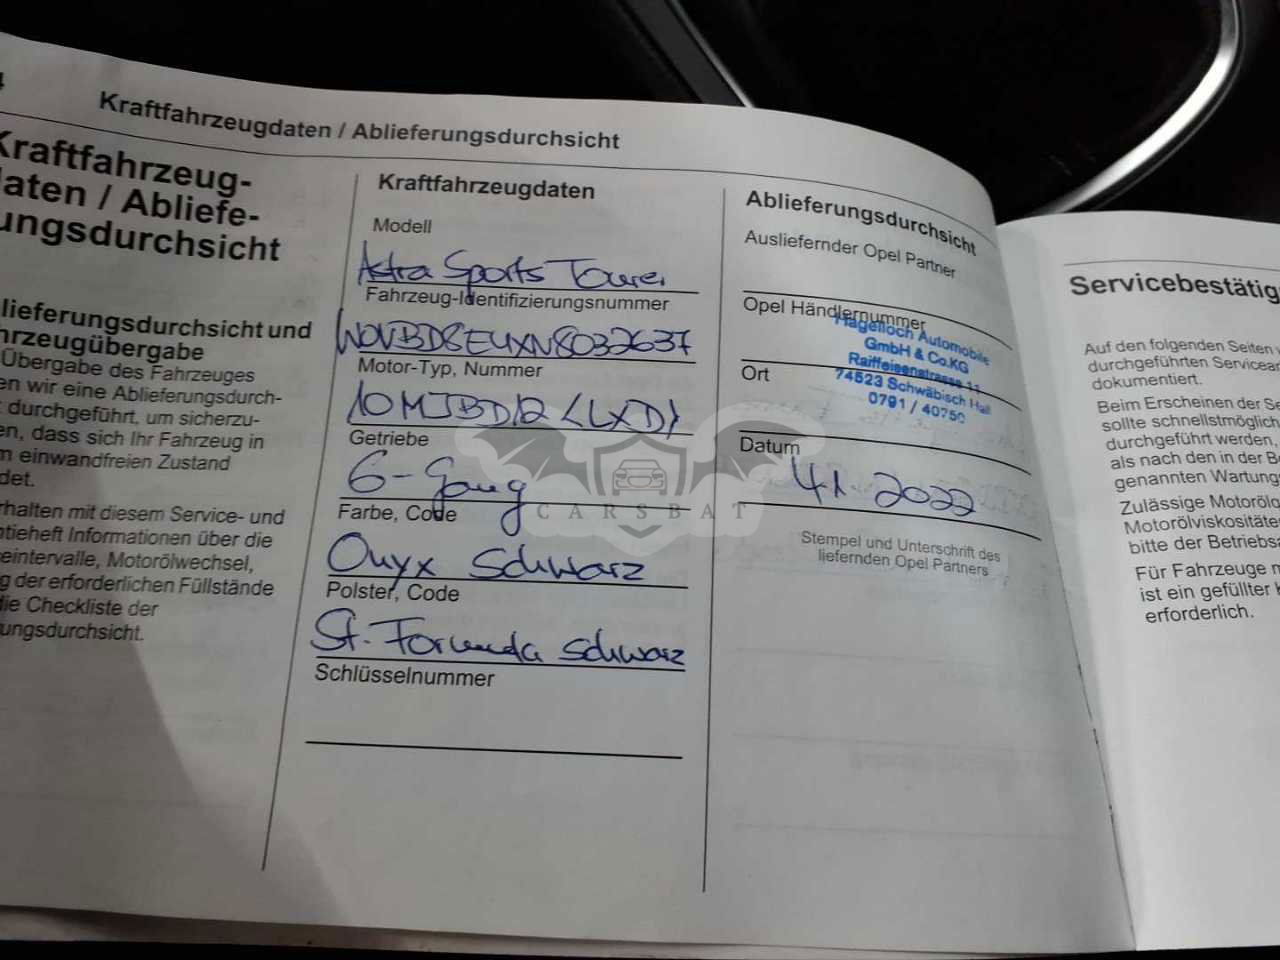 Kraftfahrzeugdaten / Ablieferungsdurchsicht
Kraftfahrzeug-
daten / Abliefe-
ungsdurchsicht
lieferungsdurchsicht und
hrzeugübergabe
Übergabe des Fahrzeuges
en wir eine Ablieferungsdurch-
t durchgeführt, um sicherzu-
en, dass sich Ihr Fahrzeug in
m einwandfreien Zustand
det.
rhalten mit diesem Service- und
ntieheft Informationen über die
eintervalle, Motorölwechsel,
g der erforderlichen Füllstände
die Checkliste der
ungsdurchsicht.
Kraftfahrzeugdaten
Modell
Astra Sports Tourer
Fahrzeug-Identifizierungsnummer
W0VBD8EUXN8032637
Motor-Typ, Nummer
(LXD)
Getriebe
6-Gang
Farbe, Code
Onyx Schwarz
Polster, Code
St. Formula Schwarz
Schlüsselnummer
Ablieferungsdurchsicht
Ausliefernder Opel Partner
Opel Händlernummer
Hagelloch Automobile
GmbH & Co.KG
Raiffeisenstrasse 11
74523 Schwäbisch Hall
0791 / 40750
Ort
Datum
2022
Stempel und Unterschrift des
liefernden Opel Partners
CARSBAT
Servicebestätig
Auf den folgenden Seiten
durchgeführten Servicear
dokumentiert.
Beim Erscheinen der Se
sollte schnellstmöglich
durchgeführt werden,
als nach den in der B
genannten Wartungs
Zulässige Motorölq
Motorölviskositäte
bitte der Betriebsa
Für Fahrzeuge m
ist ein gefüllter
erforderlich.